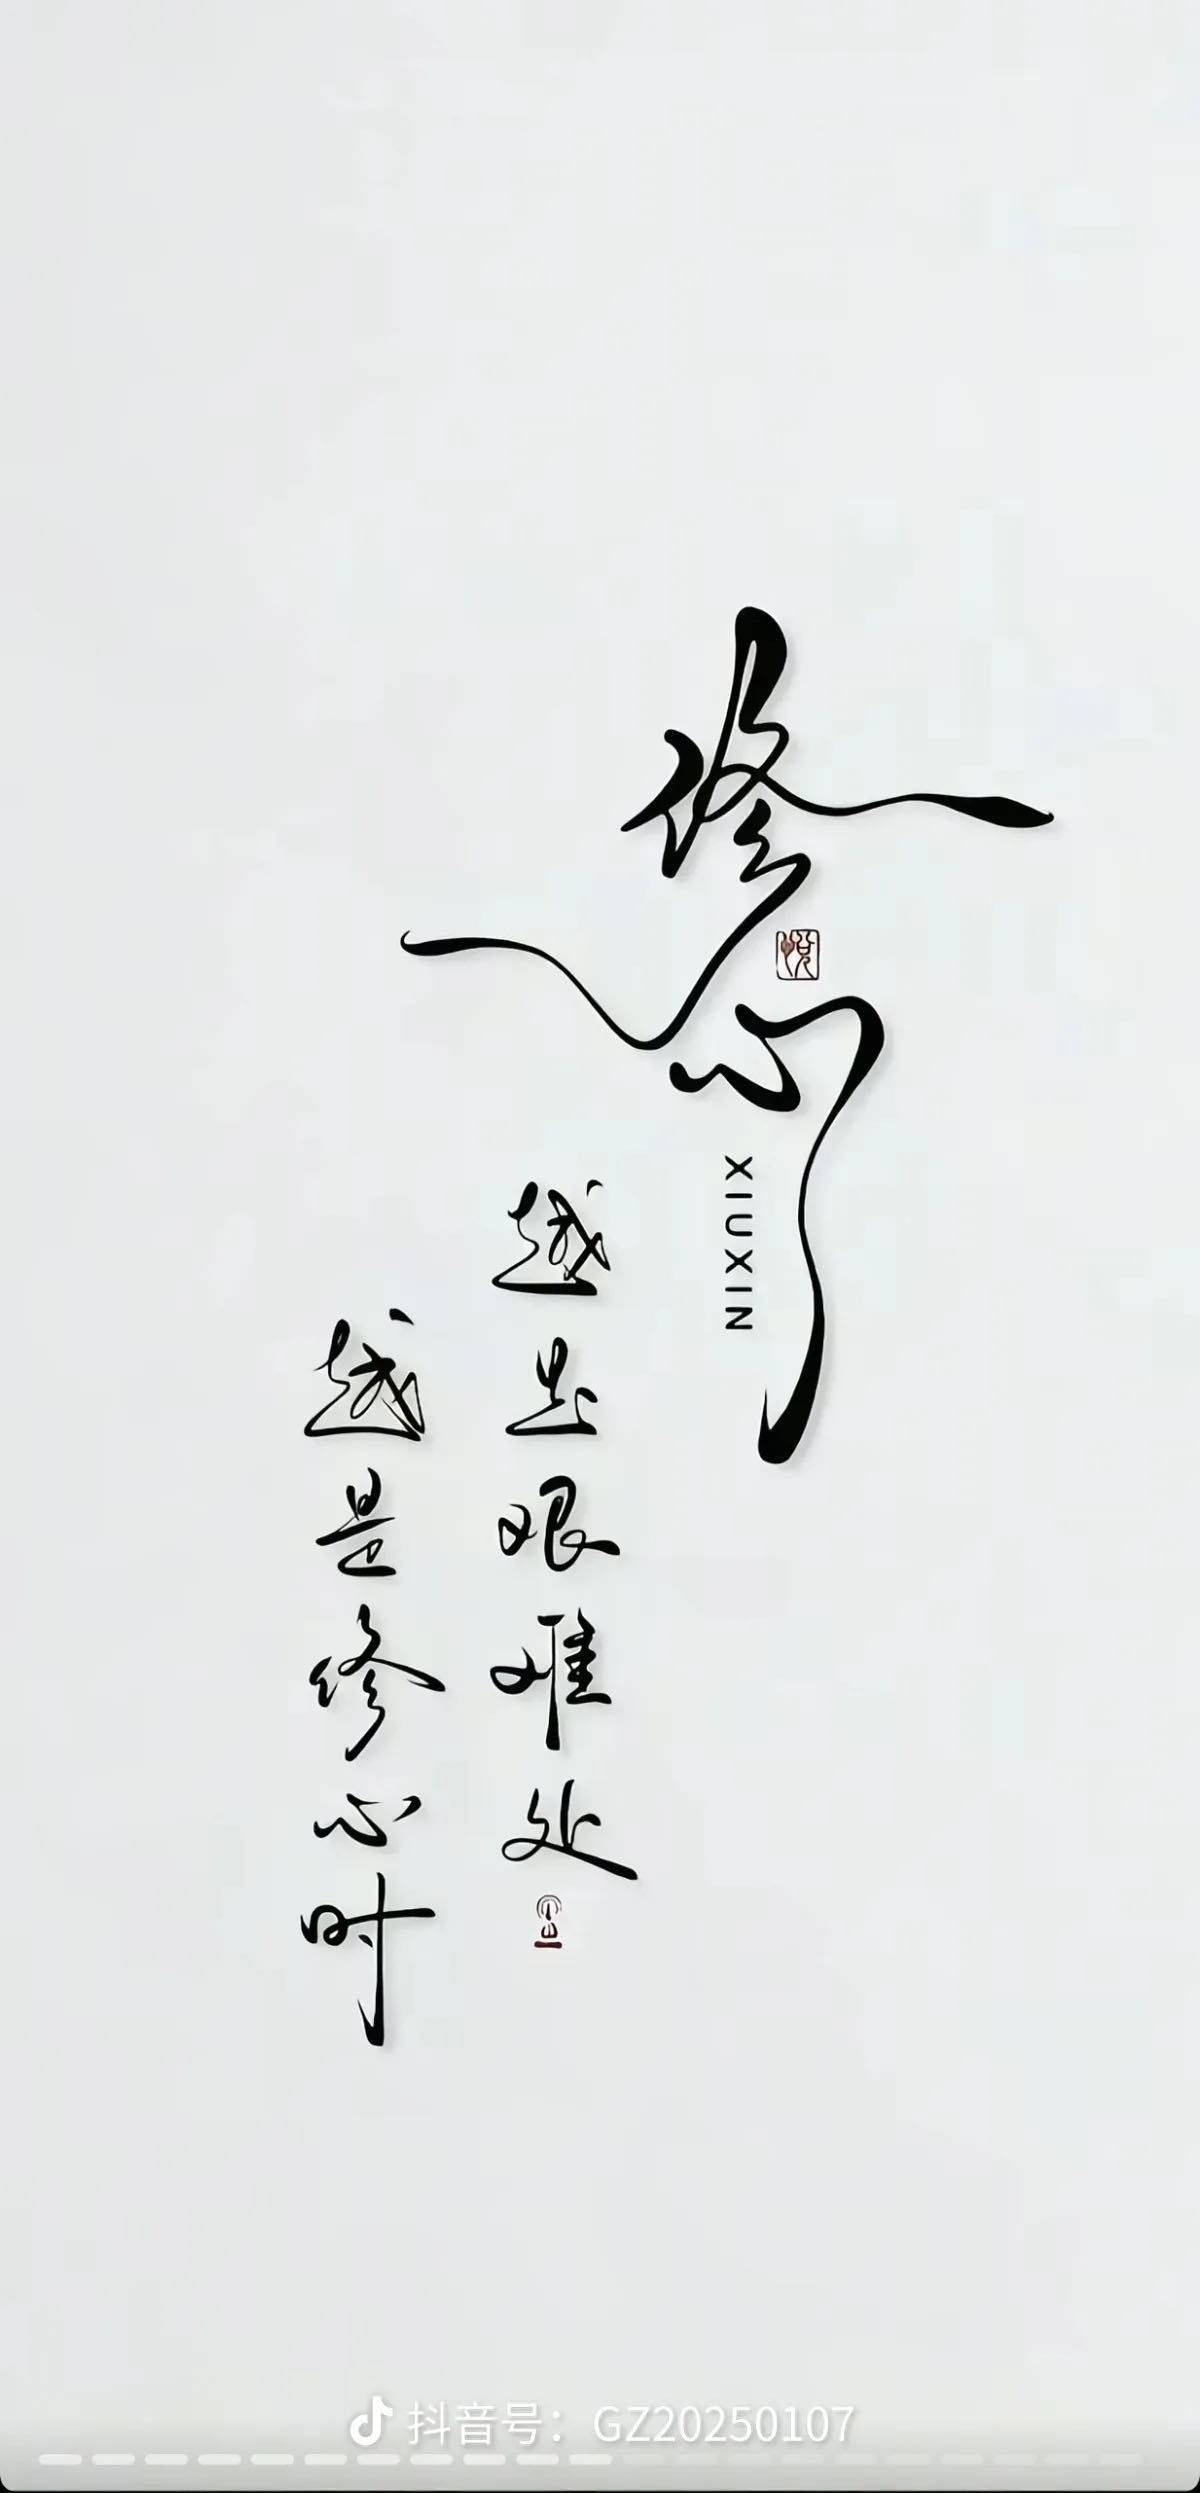 修心
XIUXIN
越是艰难处
越是修心时
抖音号：GZ20250107